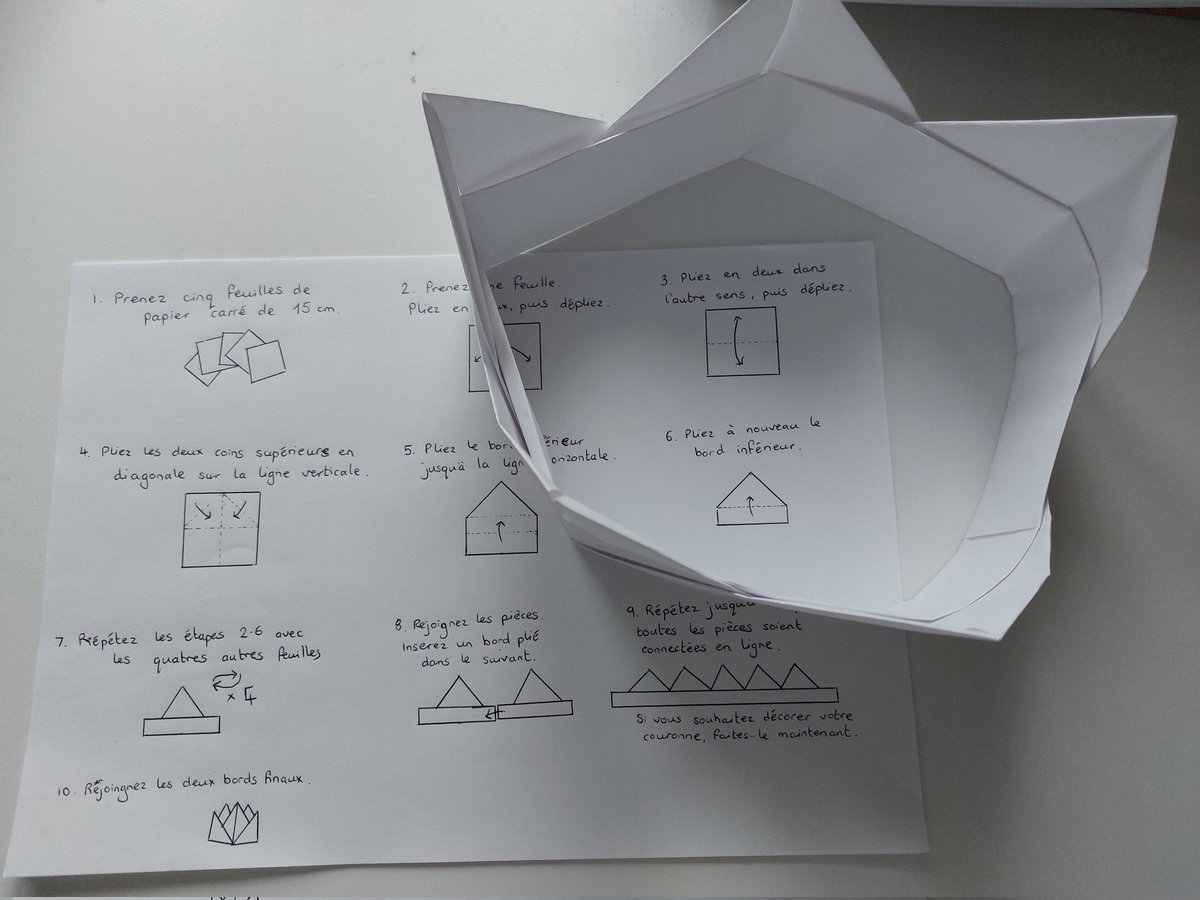 1. Prenez cinq feuilles de
papier carré de 15 cm.
2. Prenez ne feuille.
Pliez en ux, puis dépliez.
3. Pliez en deux dans
l'autre sens, puis dépliez.
4. Pliez les deux coins supérieurs en
diagonale sur la ligne verticale.
5. Pliez le bord érieur
jusqu'à la lign orizontale.
6. Pliez à nouveau le
bord inférieur.
7. Répétez les étapes 2-6 avec
les quatres autres feuilles
x 4
8. Rejoignez les pièces.
Inserez un bord plié
dans le suivant.
9. Répétez jusqu'à
toutes les pièces soient
connectées en ligne.
Si vous souhaitez décorer votre
couronne, faites-le maintenant.
10. Rejoingnez les deux bords finaux.